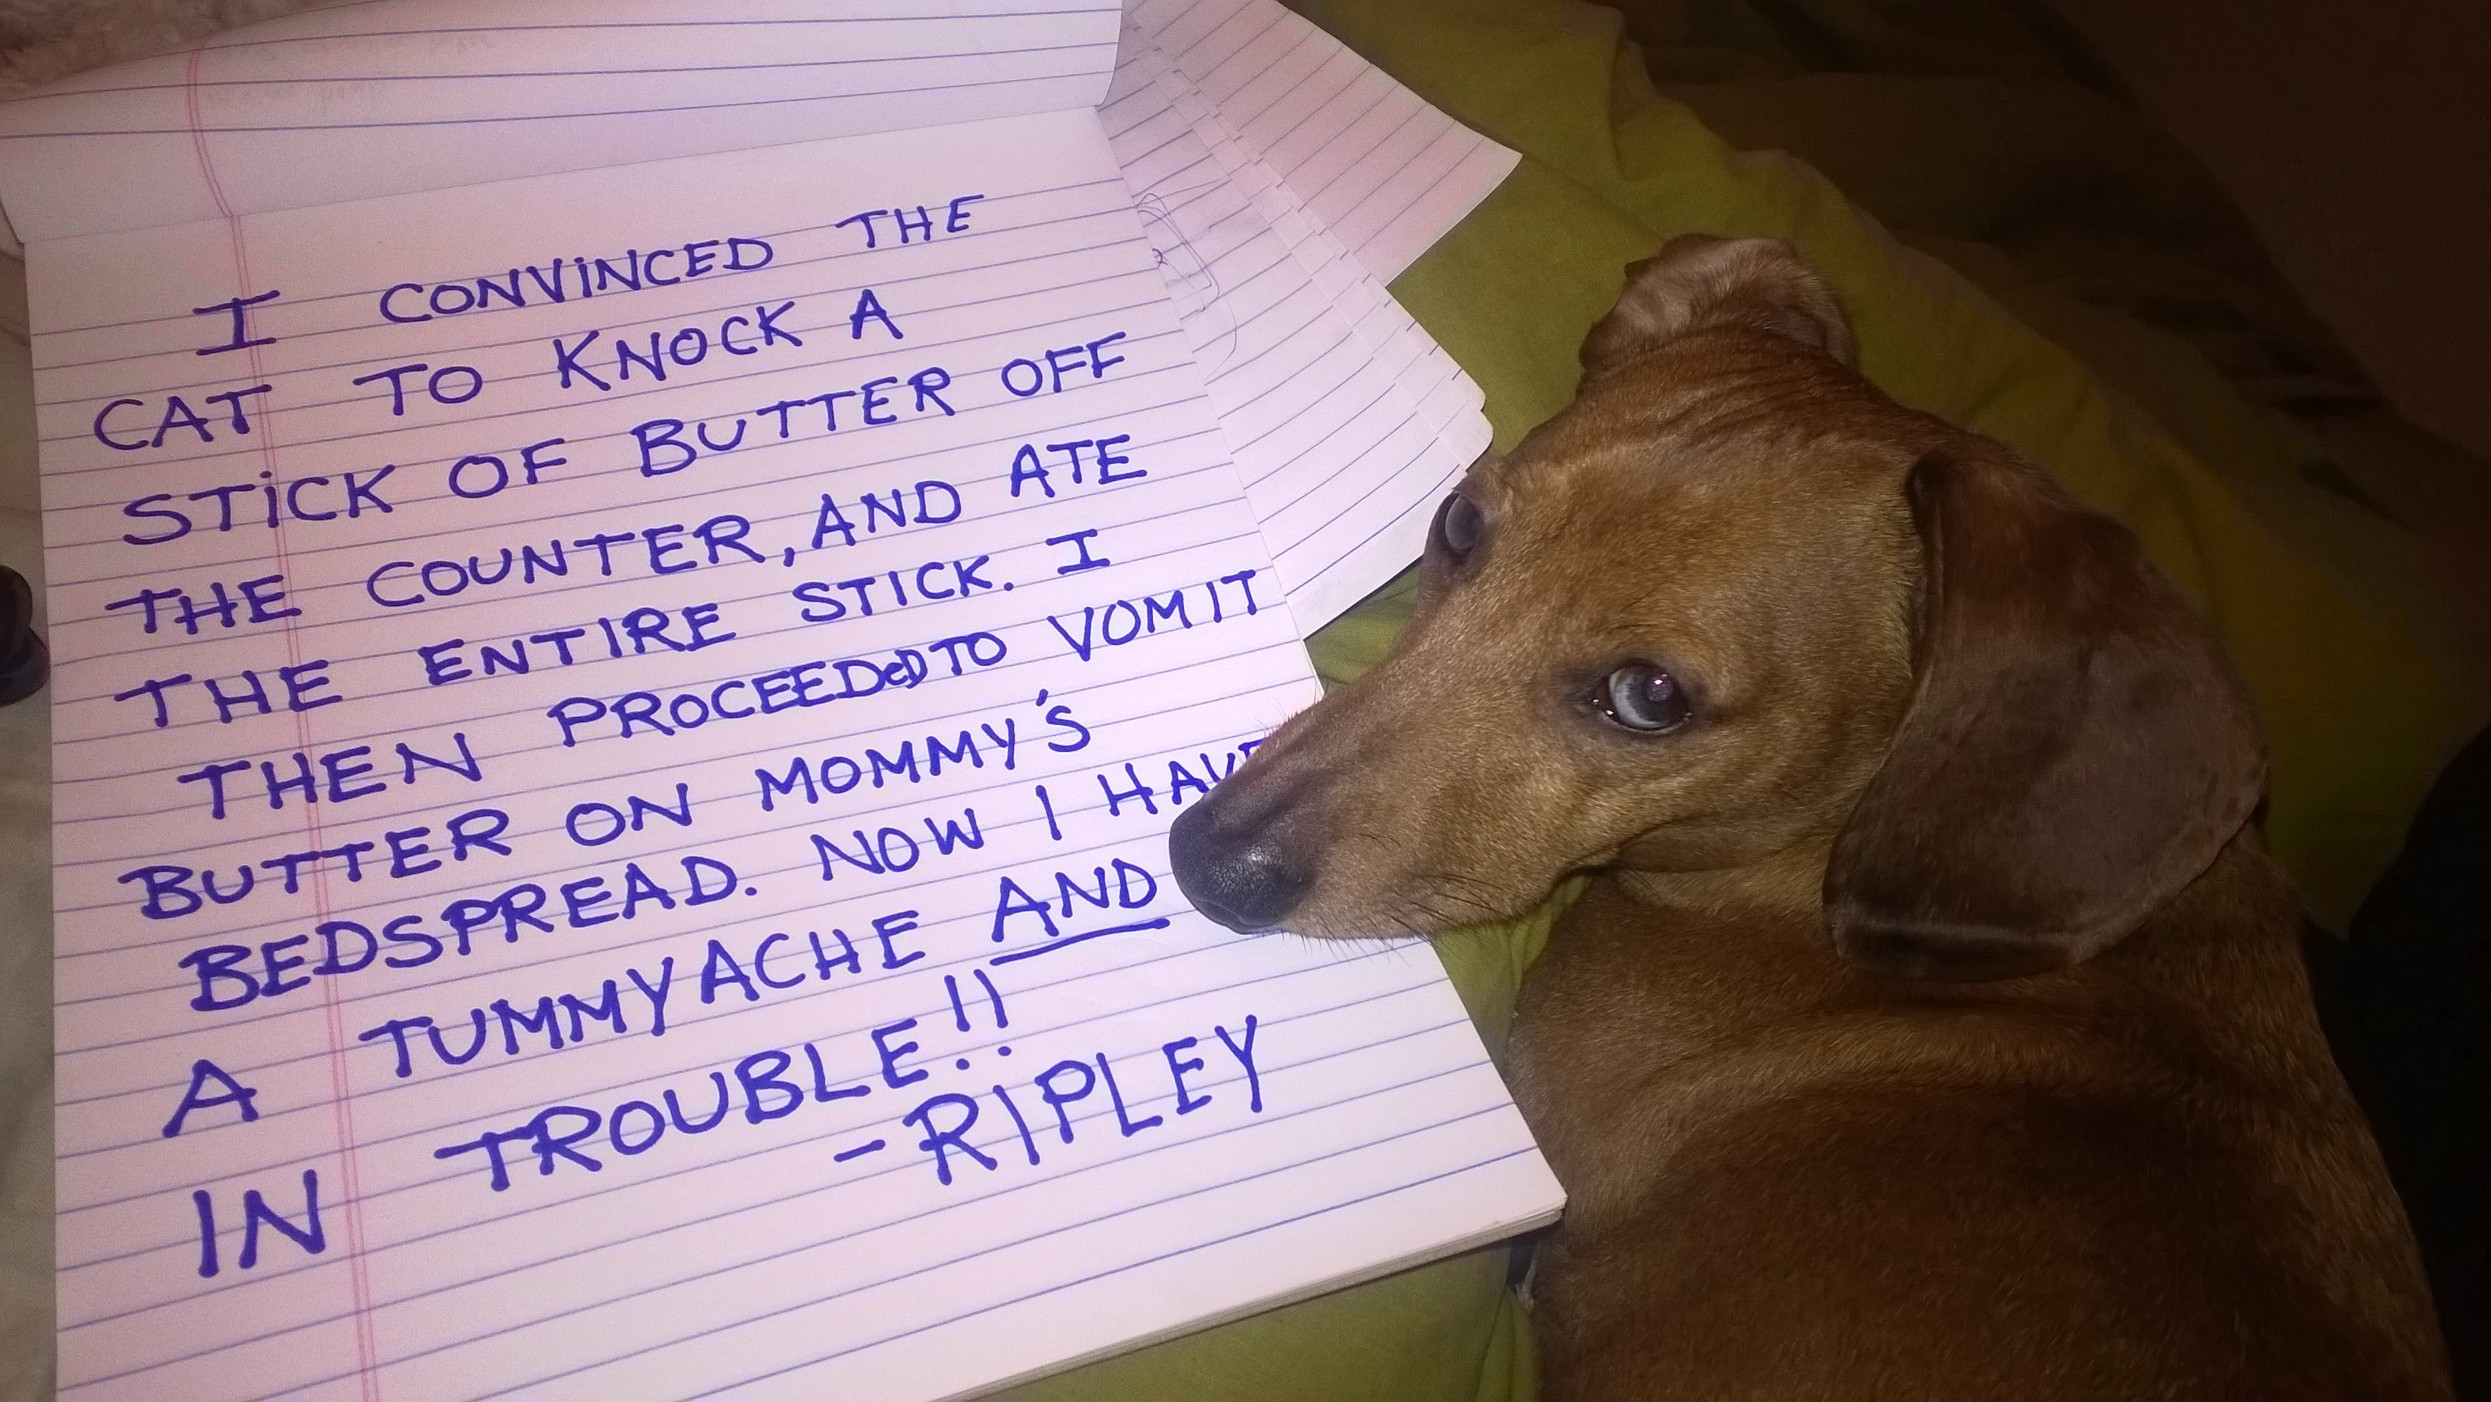 I CONVINCED THE
CAT TO KNOCK A
STICK OF BUTTER OFF
THE COUNTER, AND ATE
THE ENTIRE STICK. I
THEN PROCEEDED TO VOMIT
BUTTER ON MOMMY'S
BEDSPREAD. NOW I HAVE
A TUMMYACHE AND
IN TROUBLE!!
-RIPLEY